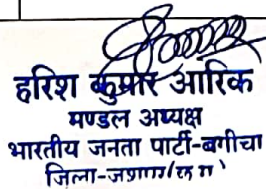 हरिश कुमार आरिक
मण्डल अध्यक्ष
भारतीय जनता पार्टी-बगीचा
जिला-जशपुर (छ ग)